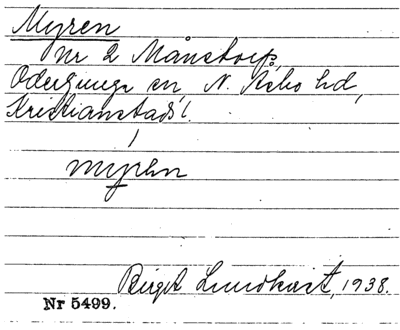 Myren
nr 2 Månstorp,
Oderljunga sn, N. Åsbo hd,
Kristianstads l.
myren
Birgit Lundkvist, 1938.
Nr 5499.